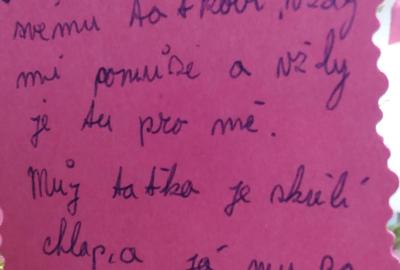 svému taťkovi, vždy
mi pomůže a vždy
je tu pro mě.
Můj taťka je skvělí
chlap, a já mu za